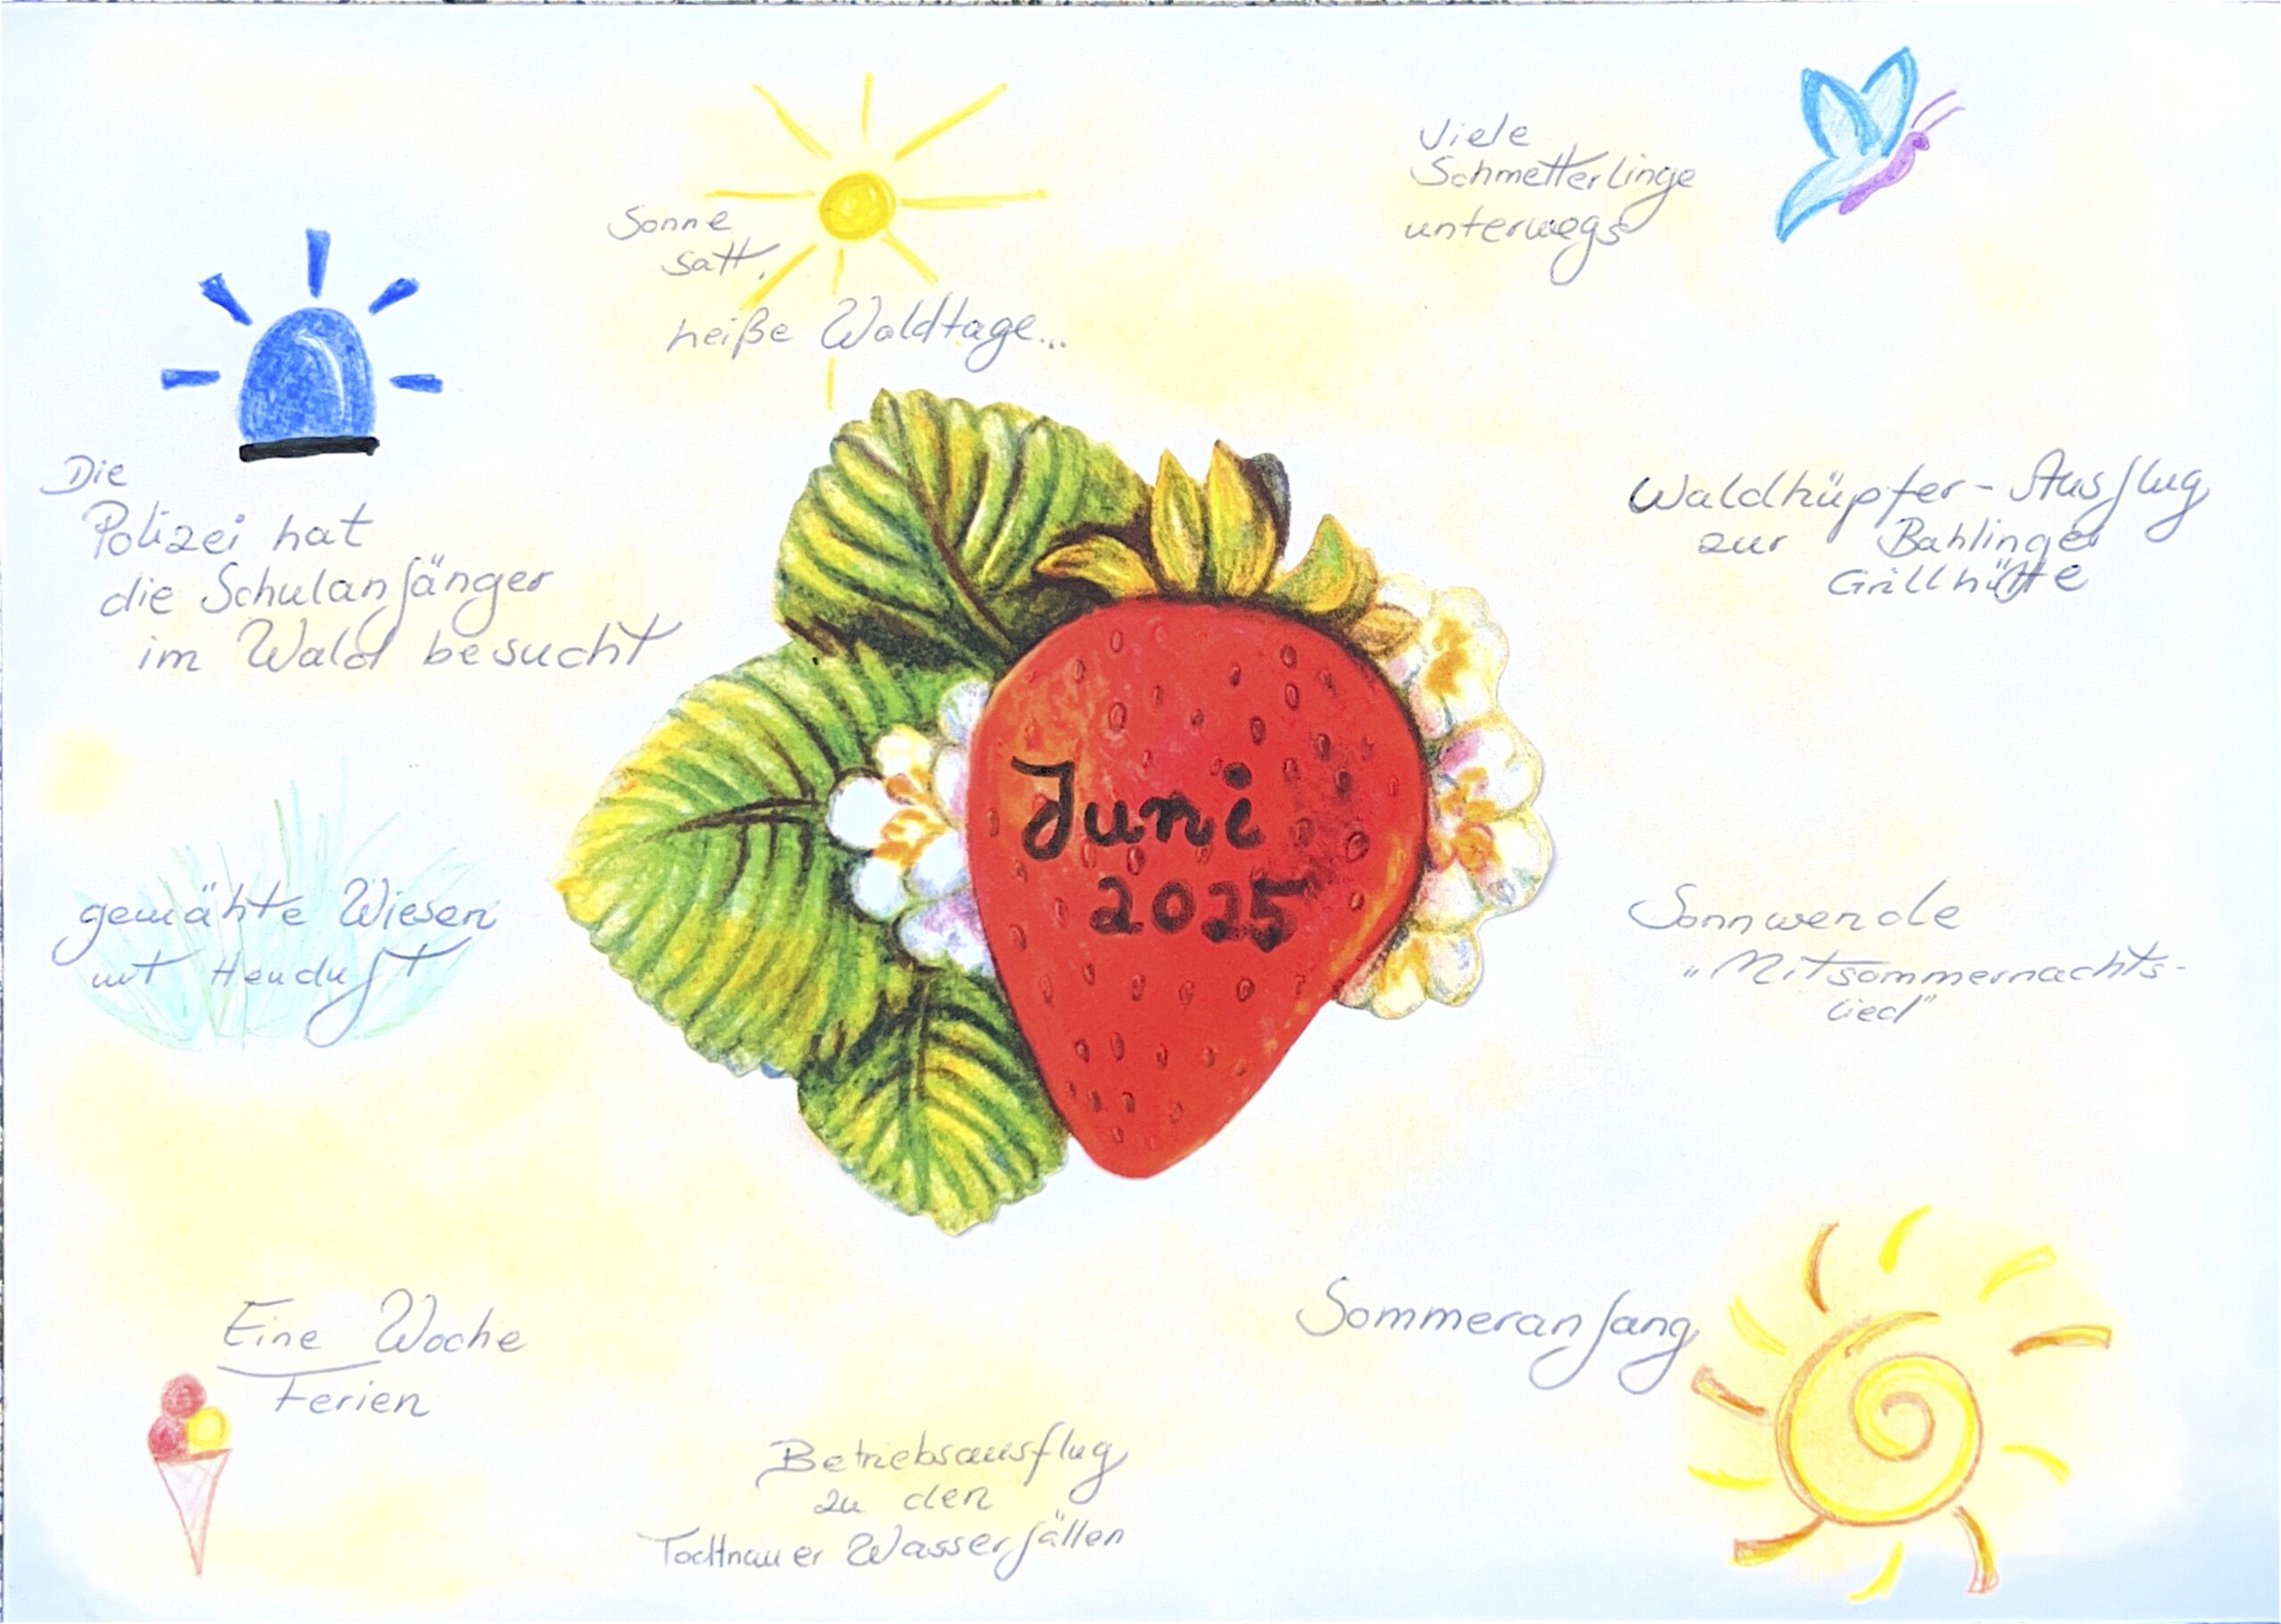 Sonne
satt,
heiße Waldtage...
Viele
Schmetterlinge
unterwegs
Die
Polizei hat
die Schulanfänger
im Wald besucht
Waldhüpfer-Ausflug
zur Bahlinger
Grillhütte
Juni
2025
gemähte Wiesen
mit Heuduft
Sonnwende
"Mitsommernachts-
lied"
Eine Woche
Ferien
Sommeranfang
Betriebsausflug
zu den
Todtnauer Wasserfällen